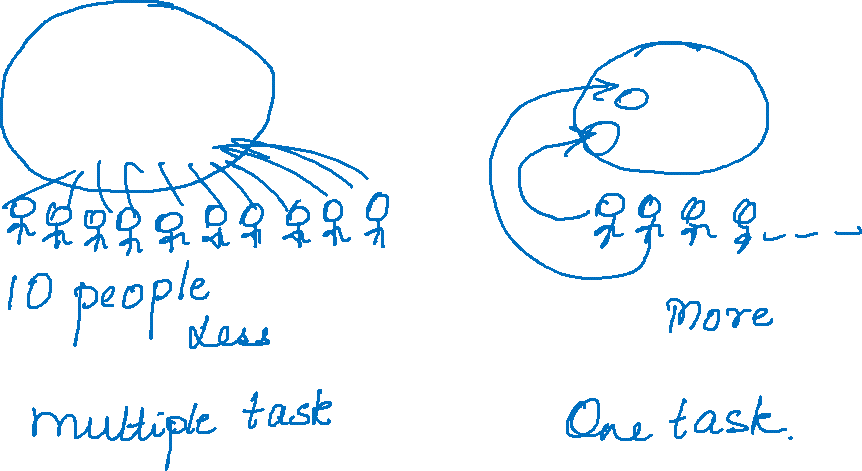 10 people
Less
multiple task
More
One task.